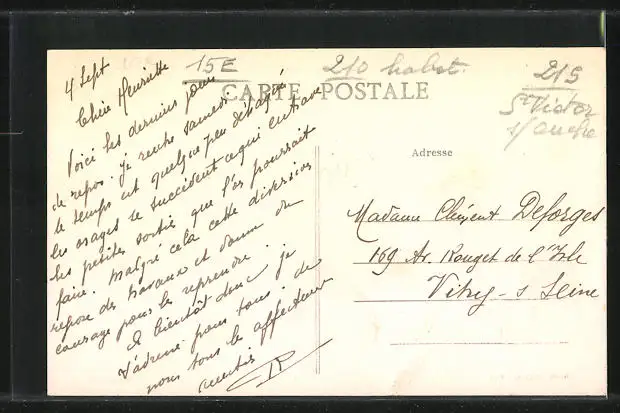 15E
210 habst.
215
St Victor
s/ ouche
CARTE POSTALE
Adresse
4 Sept
Chère Henriette
Voici les derniers jours
de repos. Je rentre samedi
le temps est quelque peu détraqué
les orages se succèdent ce qui entrave
les petites sorties que l'on pourrait
faire. Malgré cela cette diversion
repose des travaux et donne du
courage pour les reprendre.
A bientôt donc je
t'adresse pour tous de
nous tous les affectueux
Madame Clément Deforges
169 Av. Rouget de l'Isle
Vitry-s Seine